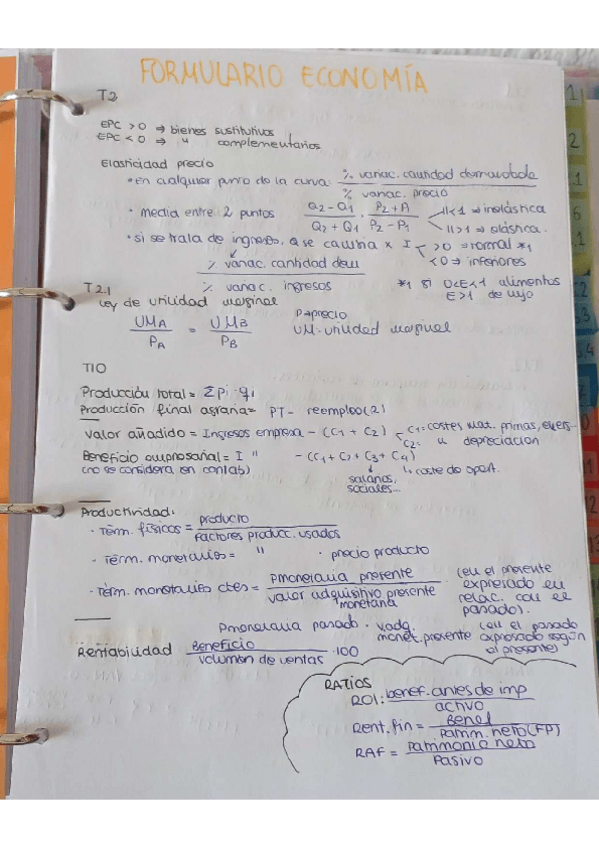 FORMULARIO ECONOMÍA
T2
EPC > 0 ⇒ bienes sustitutivos
EPC < 0 ⇒ " complementarios
Elasticidad precio
• en cualquier punto de la curva: % variac. cantidad demandada / % variac. precio
• media entre 2 puntos Q2 - Q1 / Q2 + Q1 · P2 + P1 / P2 - P1 || < 1 ⇒ inelástica
|| > 1 ⇒ elástica
• si se trata de ingresos, Q se cambia x I > 0 ⇒ normal *1
< 0 ⇒ inferiores
% variac. cantidad dem / % variac. ingresos
*1 si 0<E<1 alimentos
E>1 de lujo
T2.1
Ley de utilidad marginal
UMA / PA = UMB / PB
P→precio
UM→utilidad marginal
T10
Producción total = Σ Pi · qi
Producción final agraria = PT - reempleo (2)
Valor añadido = Ingresos empresa - (C1 + C2)
C1 = costes mat. primas, ener-
C2: " depreciacion
Beneficio empresarial = I " - (C1 + C2 + C3 + C4)
(no se considera en contab)
salarios, sociales...
↳ coste de oport.
Productividad:
• Térm. físicos = producto / factores producc. usados
• Térm. monetarios = " · precio producto
• Térm. monetarios ctes = Pmonetaria presente / valor adquisitivo presente monetaria
(en el presente expresado en relac. con el pasado).
Pmonetaria pasado · vadq. monet. presente
(en el pasado expresado según al presente)
Rentabilidad Beneficio / volumen de ventas · 100
RATIOS
ROI: benef. antes de imp / activo
Rent. fin = Benef / Patrim. neto (FP)
RAF = Patrimonio neto / Pasivo